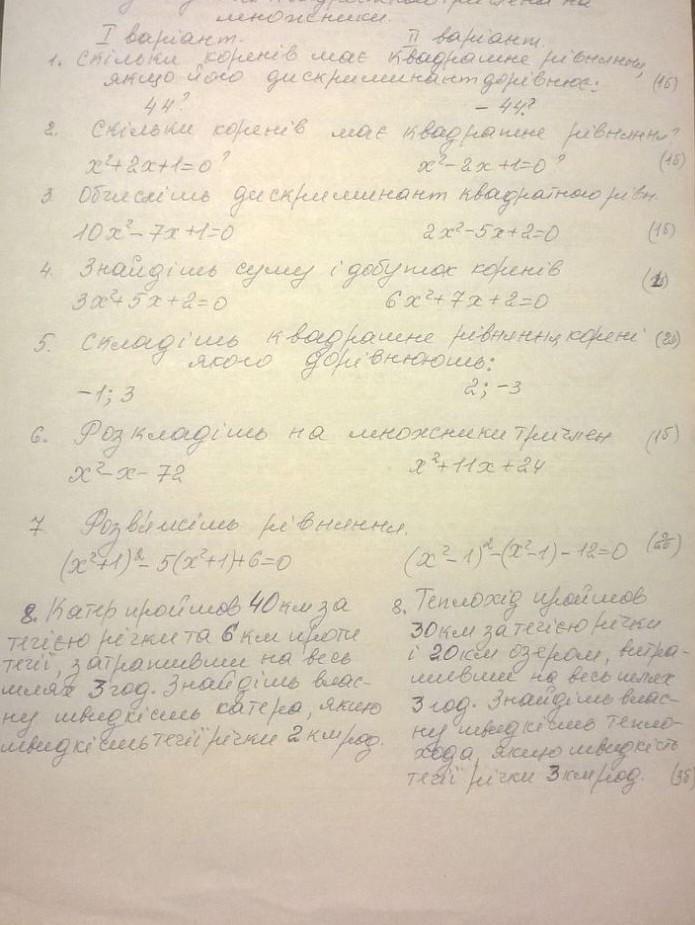 множники.
I варіант. II варіант.
1. Скільки коренів має квадратне рівняння,
якщо його дискриминант дорівнює: (1б)
44? - 44?
2. Скільки коренів має квадратне рівняння?
x²+2x+1=0? x²-2x+1=0? (1б)
3. Обчисліть дискриминант квадратного рівн.
10x²-7x+1=0 2x²-5x+2=0 (1б)
4. Знайдіть суму і добуток коренів
3x²+5x+2=0 6x²+7x+2=0
5. Складіть квадратне рівняння, корені (2б)
якого дорівнюють:
-1; 3 2; -3
6. Розкладіть на множники тричлен (1б)
x²-x-72 x²+11x+24
7 Розв'яжіть рівняння.
(x²+1)²-5(x²+1)+6=0 (x²-1)²-(x²-1)-12=0
8. Катер пройшов 40 км за
течією річки та 6 км проти
течії, затративши на весь
шлях 3 год. Знайдіть влас-
ну швидкість катера, якщо
швидкість течії річки 2 км/год.
8. Теплохід пройшов
30 км за течією річки
і 20 км озером, витра-
тивши на весь шлях
3 год. Знайдіть влас-
ну швидкість тепло-
хода, якщо швидкість
течії річки 3 км/год. (3б)